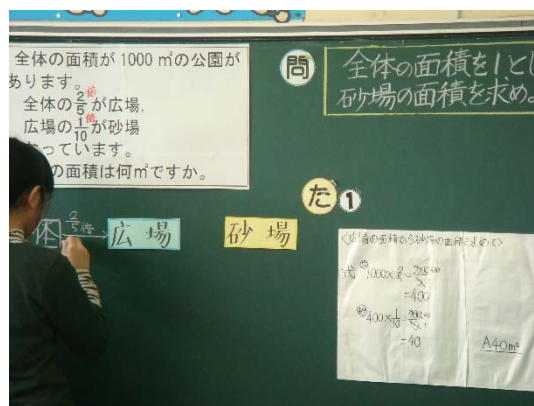 全体の面積が1000㎡の公園が
あります。
全体の2/5倍が広場,
広場の1/10倍が砂場
なっています。
の面積は何㎡ですか。
問
全体の面積を1とし
砂場の面積を求め
た
1
体
2/5倍
広場
砂場
<広場の面積から砂場の面積を求めて>
式
1000×2/5=
=400
400×1/10=
=40
A40㎡